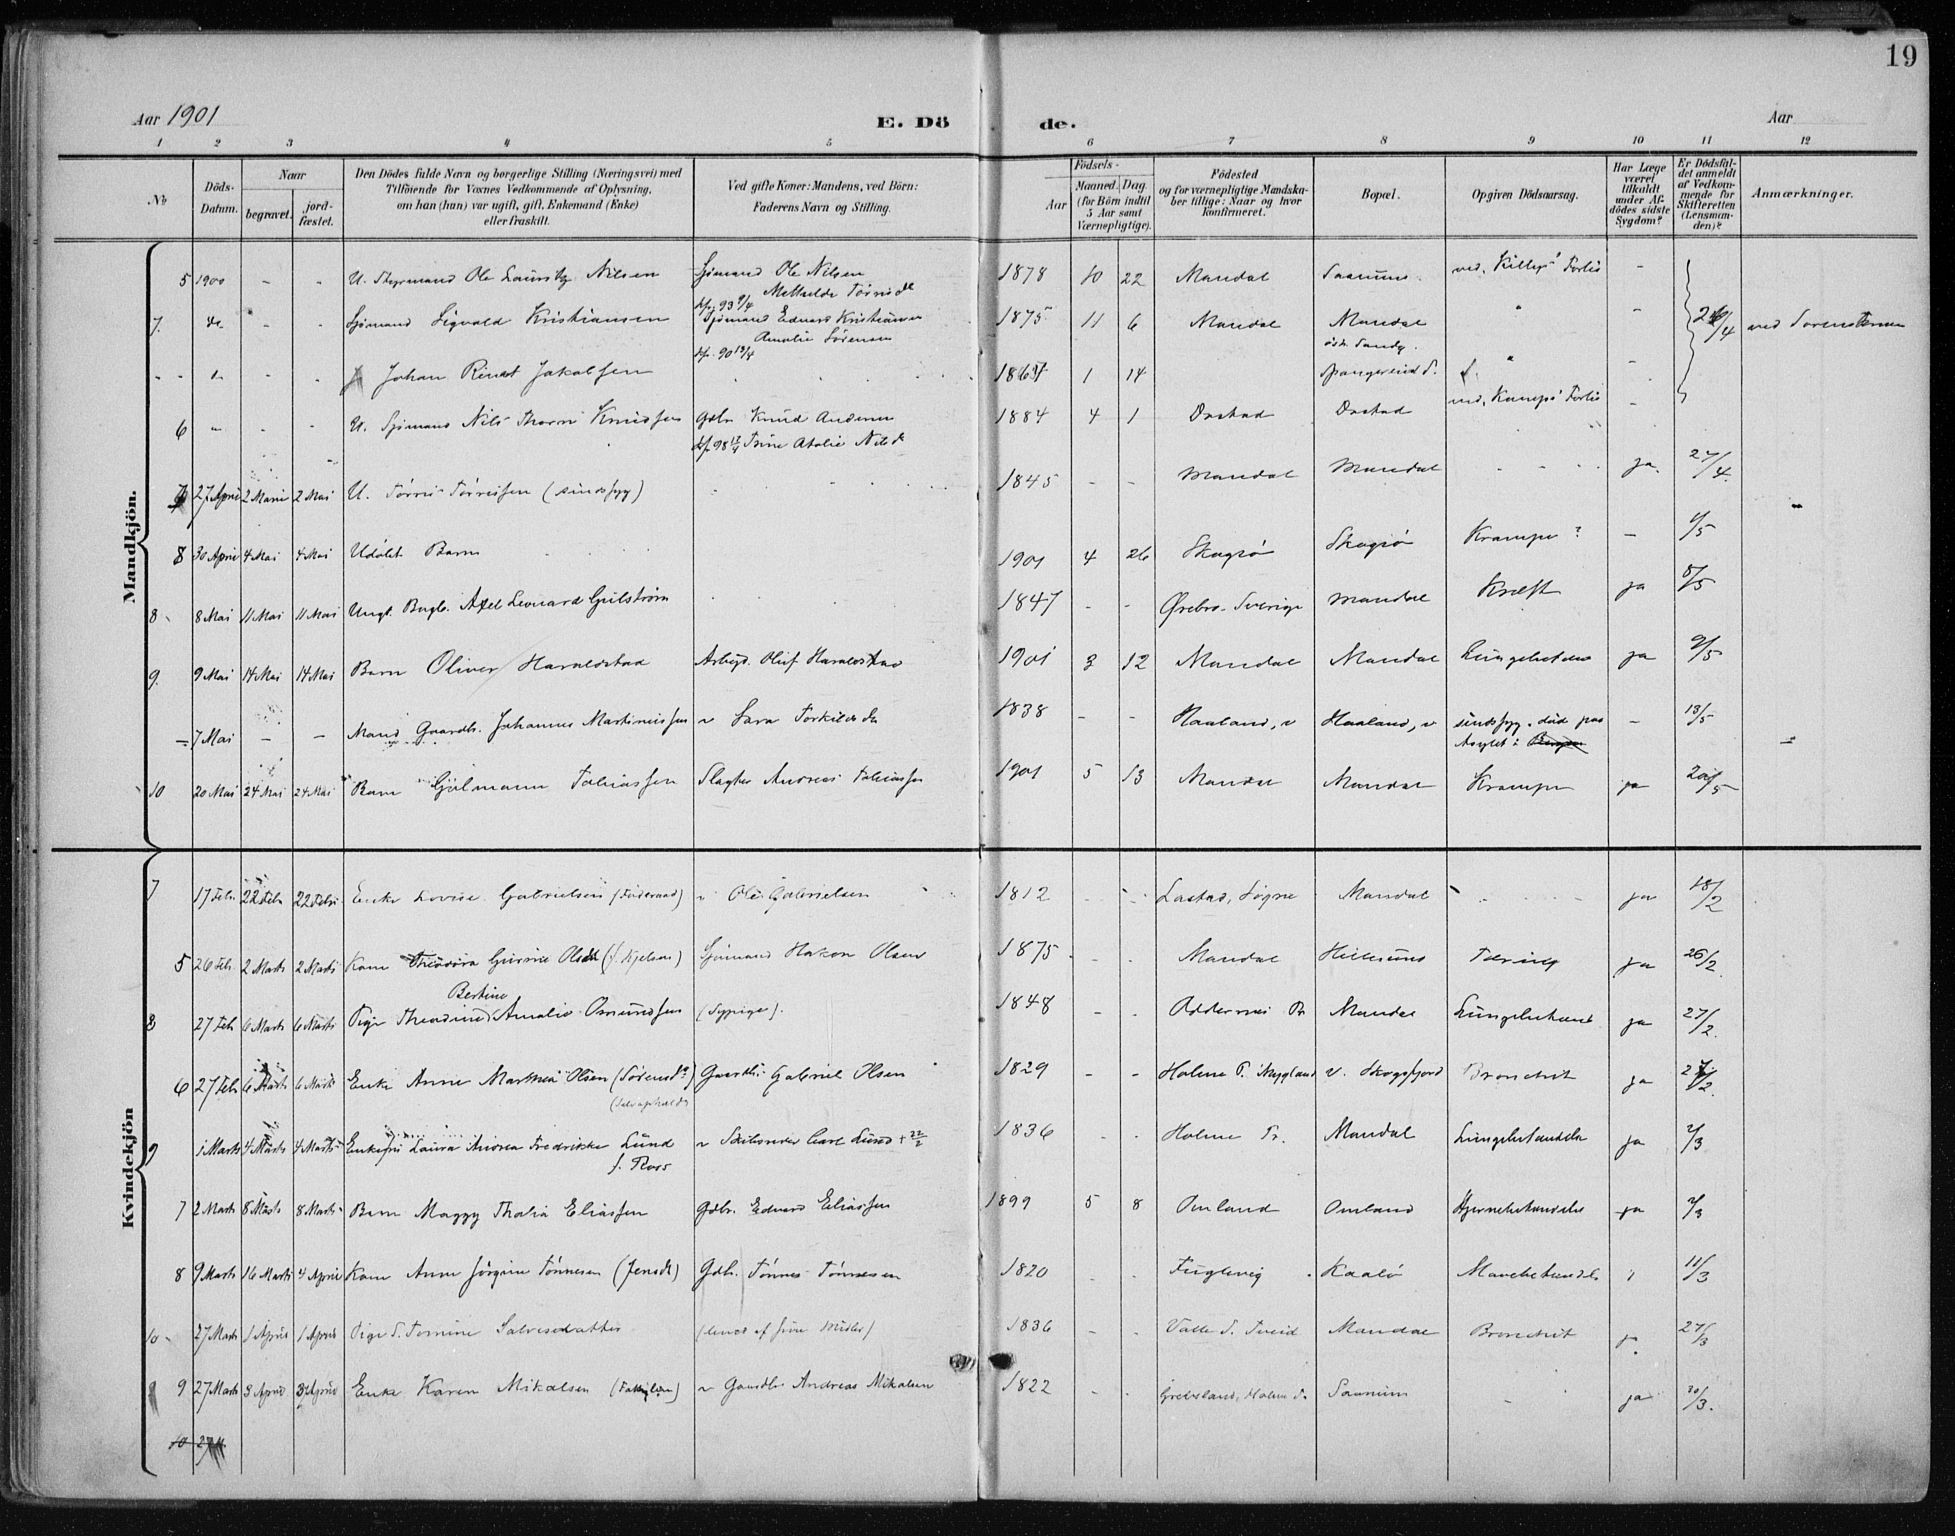 19
Aar 1901
E. Dö de.
Aar
1 2 3 4 5 6 7 8 9 10 11 12
№
Döds-Datum.
Naar
begravet.
jord-fæstet.
Den Dödes fulde Navn og borgerlige Stilling (Næringsvei) med
Tilföiende for Voxnes Vedkommende af Oplysning,
om han (hun) var ugift, gift, Enkemand (Enke)
eller fraskilt.
Ved gifte Koner: Mandens, ved Börn:
Faderens Navn og Stilling.
Födsels-
Aar
Maaned. Dag
(for Börn indtil
5 Aar samt
Værnepligtige).
Födested
og for værnepligtige Mandska-
ber tillige: Naar og hvor
konfirmeret.
Bopæl.
Opgiven Dödsaarsag.
Har Læge
været
tilkaldt
under Af-
dödes sidste
Sygdom?
Er Dödsfal-
det anmeldt
af Vedkom-
mende for
Skifteretten
(Lensman-
den)?
Anmærkninger.
Mandkjön.
5 1900 - - U. Styrmand Ole Lauritz Nilsen Sjömand Ole Nilsen 1878 10 22 Mandal ved Forlis -
Mathilde
93 9/4
7. do - - Sjömand Sigvald Kristiansen Sjömand Edvard Kristiansen 1875 11 6 Mandal Mandal " - 26/4 ved
Amalie Sörensen
90 13/4
- - Johan Jakobsen 1 14 Spangereid S. "
6 " - - U. Sjömand Nils Knudsen Gdbr Knud Andersen 1884 4 1 Forlis -
98 17/4 Trine Atalie Nilsd
7 27 April 2 Mai 2 Mai U. Törres Törresen (sindssyg) 1845 - - Mandal Mandal ja. 27/4
8 30 April 4 Mai 4 Mai Udöbt Barn 1901 4 26 Skogsö Skogsö Krampe? - 1/5
8 8 Mai 11 Mai 11 Mai Ungk. Bogb. Axel Leonard Gulström 1847 - - Örebro Sverige Mandal Kræft ja 8/5
9. 9 Mai 14 Mai 14 Mai Barn Oliver Haraldstad Arbeid. Oluf Haraldstad 1901 3 12 Mandal Mandal ja 9/5
- 7 Mai - - Mand Gaardb. Johannes Martiniussen v Sara Torkilds 1838 - - Haaland, v Haaland, v sindssyg. död paa - 13/5
Asylet i
10 20 Mai 24 Mai 24 Mai Barn Gjolmann Tobiassen Slagter Andreas Tobiassen 1901 5 13 Mandal Mandal Krampe ja 20/5
Kvindekjön
7 17 Febr 22 Febr 22 Febr Enke Lovise Gabrielsen (Föderaad) v Ole Gabrielsen 1812 - - Lastad, Sögne Mandal ja 18/2
5 26 Feb. 2 Marts 2 Marts Kone Gurine Olsen Sjömand Hakon Olsen 1875 - - Mandal Hillesund Tæring ja 26/2
Bertine
8 27 Feb 6 Marts 6 Marts Pige Theodine Amalie Omundsen (Sypige). 1848 - - Oddernes Pr Mandal Lungebetænd ja 27/2
6 27 Feb 6 Marts 6 Marts Enke Anne Marthea Olsen (Sörensd) Gaardbr. Gabriel Olsen 1829 - - Holme P. v. Skogsfjord Bronchit ja 27/2
9 1 Marts 4 Marts 4 Marts Enkefru Laura Andrea Fredrikke Lund v Skibsreder Carl Lund + 22/2 1836 - - Holme Pr. Mandal Lungebetændelse ja 2/3
f. Roos
7 2 Marts 8 Marts 8 Marts Barn Maggy Thalia Eliassen Gdbr. Edvard Eliassen 1899 5 8 Omland Omland Hjernebetændelse ja 2/3
8 9 Marts 16 Marts 4 April Kone Anne Jörgine Tönnesen (Jensdt) Gdbr. Tönnes Tönnesen 1820 - - Fuglevig Kaalö Mavebetændelse 11/3
10 27 Marts 1 April 1 April Pige S. Tomine Salvesdatter 1836 - - Valle S. Tveid Mandal Bronchit ja 27/3
9 27 Marts 3 April 3 April Enke Karen Mikalsen v Gaardbr Andreas Mikalsen 1822 - - Grebsland, Holme Saanum - ja 30/3.
10